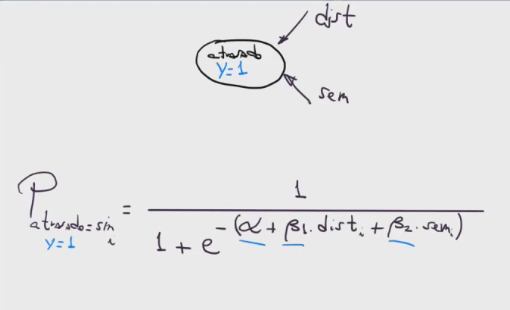 dist
atrasado
Y=1
sem
P atrasado=sim i = 1
1 + e -(α + β1.disti + β2.semi)
Y=1